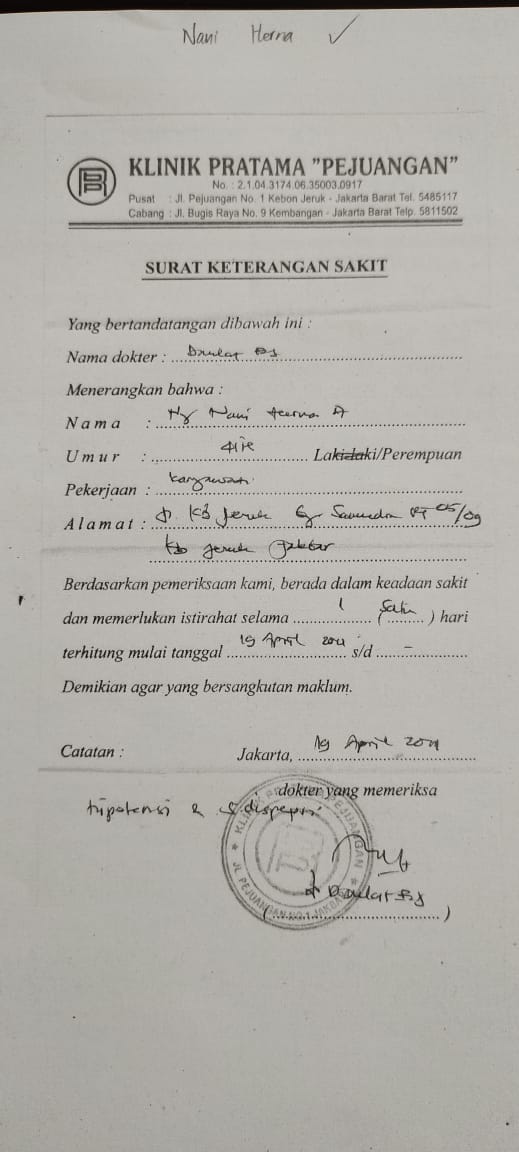 Nani Herna ✓
KLINIK PRATAMA "PEJUANGAN"
No. : 2.1.04.3174.06.35003.0917
Pusat : Jl. Pejuangan No. 1 Kebon Jeruk - Jakarta Barat Tel. 5485117
Cabang : Jl. Bugis Raya No. 9 Kembangan - Jakarta Barat Telp. 5811502
SURAT KETERANGAN SAKIT
Yang bertandatangan dibawah ini :
Nama dokter :
Menerangkan bahwa :
Nama : Ny Nani Herna A
Umur : Lakidaki/Perempuan
Pekerjaan : Karyawati
Alamat : Jl. Kb Jeruk RT 05/09
Kb Jeruk Jakbar
Berdasarkan pemeriksaan kami, berada dalam keadaan sakit
dan memerlukan istirahat selama 1 (Satu) hari
terhitung mulai tanggal 19 April s/d -
Demikian agar yang bersangkutan maklum.
Catatan : Jakarta, 19 April
dokter yang memeriksa
hipotensi & dispepsi
KLINIK PEJUANGAN
JL. PEJUANGAN NO.1 JAKBAR